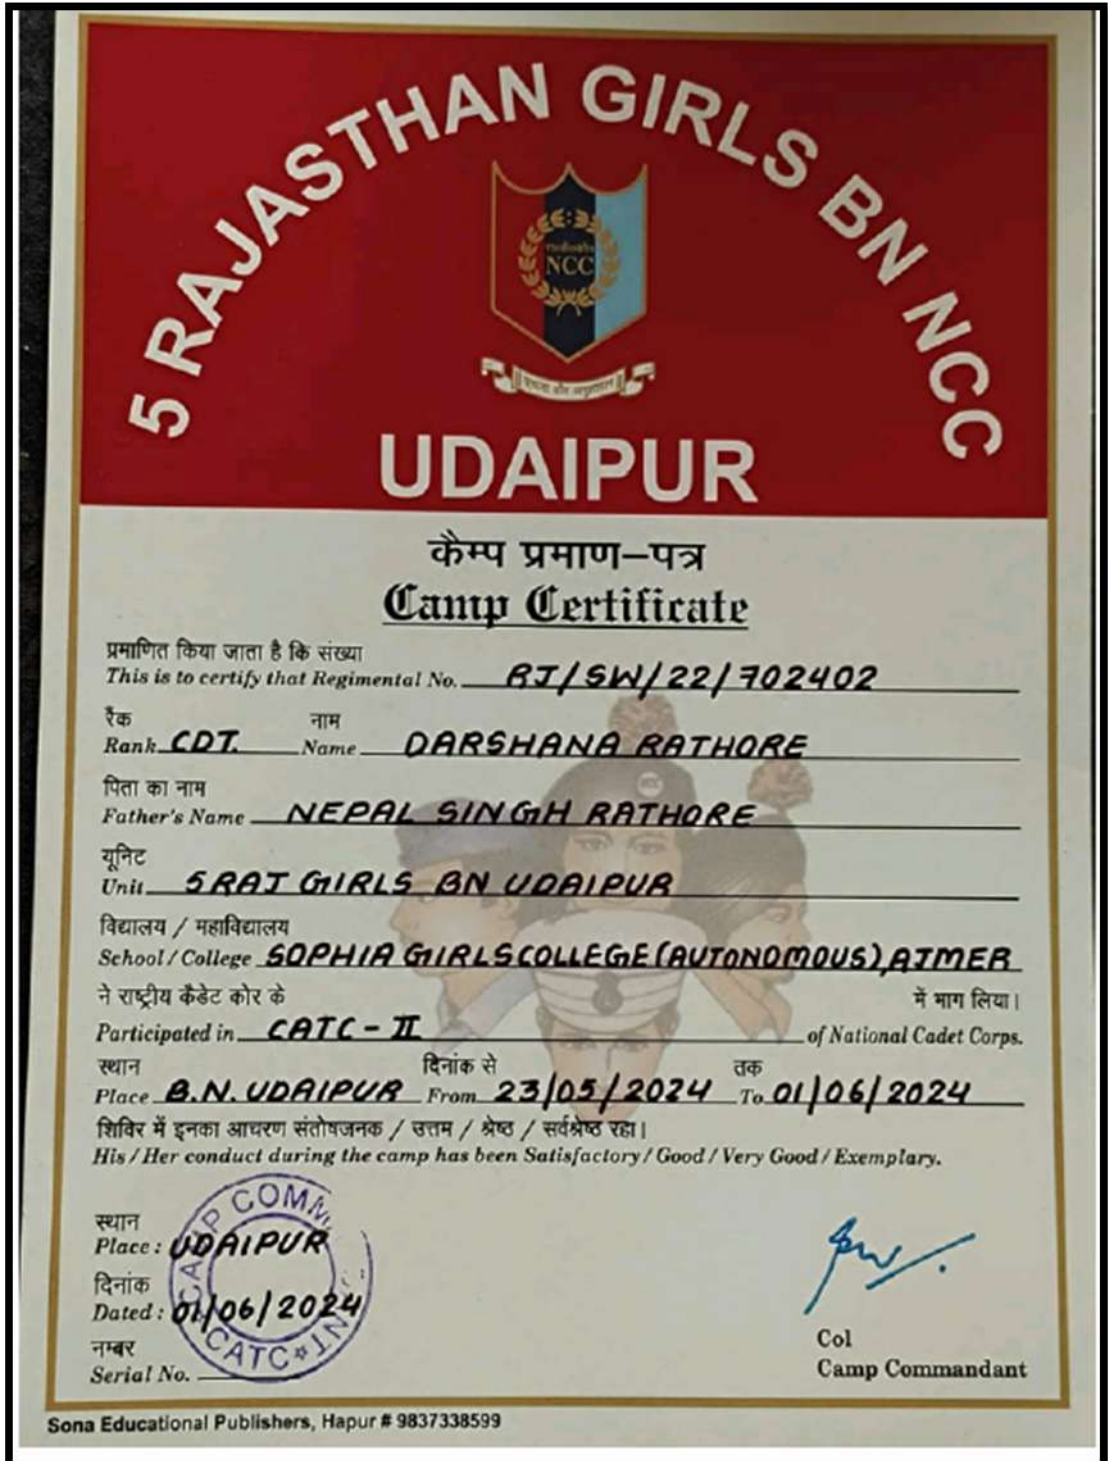 5 RAJASTHAN GIRLS BN NCC
NCC
UDAIPUR
कैम्प प्रमाण–पत्र
Camp Certificate
प्रमाणित किया जाता है कि संख्या
This is to certify that Regimental No. RJ/SW/22/702402
रैंक नाम
Rank CDT. Name DARSHANA RATHORE
पिता का नाम
Father's Name NEPAL SINGH RATHORE
यूनिट
Unit 5 RAJ GIRLS BN UDAIPUR
विद्यालय / महाविद्यालय
School / College SOPHIA GIRLS COLLEGE (AUTONOMOUS), AJMER
ने राष्ट्रीय कैडेट कोर के में भाग लिया।
Participated in CATC - II of National Cadet Corps.
स्थान दिनांक से तक
Place B.N. UDAIPUR From 23/05/2024 To 01/06/2024
शिविर में इनका आचरण संतोषजनक / उत्तम / श्रेष्ठ / सर्वश्रेष्ठ रहा।
His / Her conduct during the camp has been Satisfactory / Good / Very Good / Exemplary.
स्थान
Place : UDAIPUR
दिनांक
Dated : 01/06/2024
नम्बर
Serial No.
CAMP COMM
CATC
Col
Camp Commandant
Sona Educational Publishers, Hapur # 9837338599